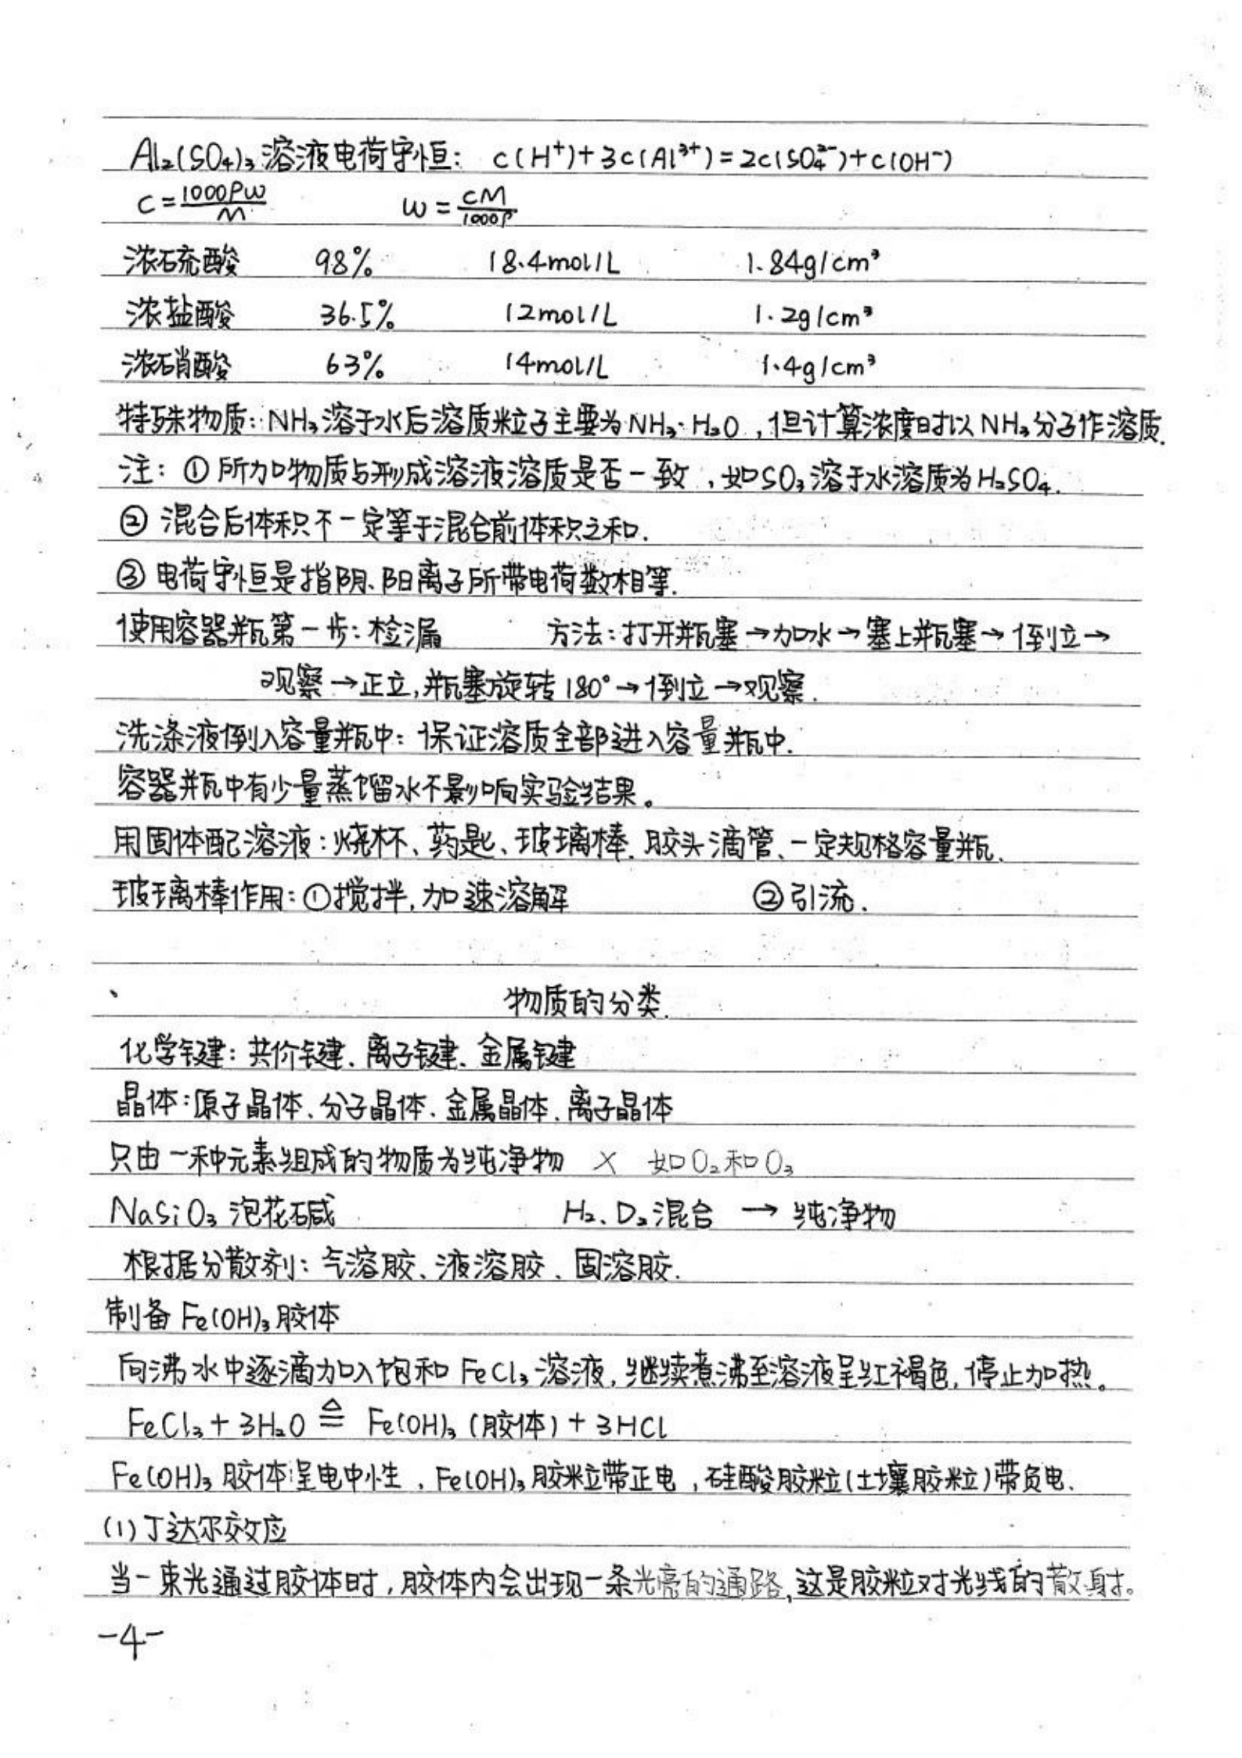 Al₂(SO₄)₃溶液电荷守恒: c(H⁺)+3c(Al³⁺)=2c(SO₄²⁻)+c(OH⁻)
c=1000ρw/M w=cM/1000ρ
浓硫酸 98% 18.4mol/L 1.84g/cm³
浓盐酸 36.5% 12mol/L 1.2g/cm³
浓硝酸 63% 14mol/L 1.4g/cm³
特殊物质:NH₃溶于水后溶质粒子主要为NH₃·H₂O,但计算浓度时以NH₃分子作溶质.
注:①所加物质与形成溶液溶质是否一致,如SO₃溶于水溶质为H₂SO₄.
②混合后体积不一定等于混合前体积之和.
③电荷守恒是指阴、阳离子所带电荷数相等.
使用容器瓶第一步:检漏 方法:打开瓶塞→加水→塞上瓶塞→倒立→
观察→正立,瓶塞旋转180°→倒立→观察.
洗涤液倒入容量瓶中:保证溶质全部进入容量瓶中.
容器瓶中有少量蒸馏水不影响实验结果。
用固体配溶液:烧杯、药匙、玻璃棒、胶头滴管、一定规格容量瓶.
玻璃棒作用:①搅拌,加速溶解 ②引流.
物质的分类
化学键:共价键、离子键、金属键
晶体:原子晶体、分子晶体、金属晶体、离子晶体
只由一种元素组成的物质为纯净物 × 如O₂和O₃
NaSiO₃泡花碱 H₂、D₂混合 → 纯净物
根据分散剂:气溶胶、液溶胶、固溶胶.
制备Fe(OH)₃胶体
向沸水中逐滴加入饱和FeCl₃溶液,继续煮沸至溶液呈红褐色,停止加热。
FeCl₃+3H₂O ≜ Fe(OH)₃(胶体)+3HCl
Fe(OH)₃胶体呈电中性,Fe(OH)₃胶粒带正电,硅酸胶粒(土壤胶粒)带负电.
(1)丁达尔效应
当一束光通过胶体时,胶体内会出现一条光亮的通路,这是胶粒对光线的散射。
-4-